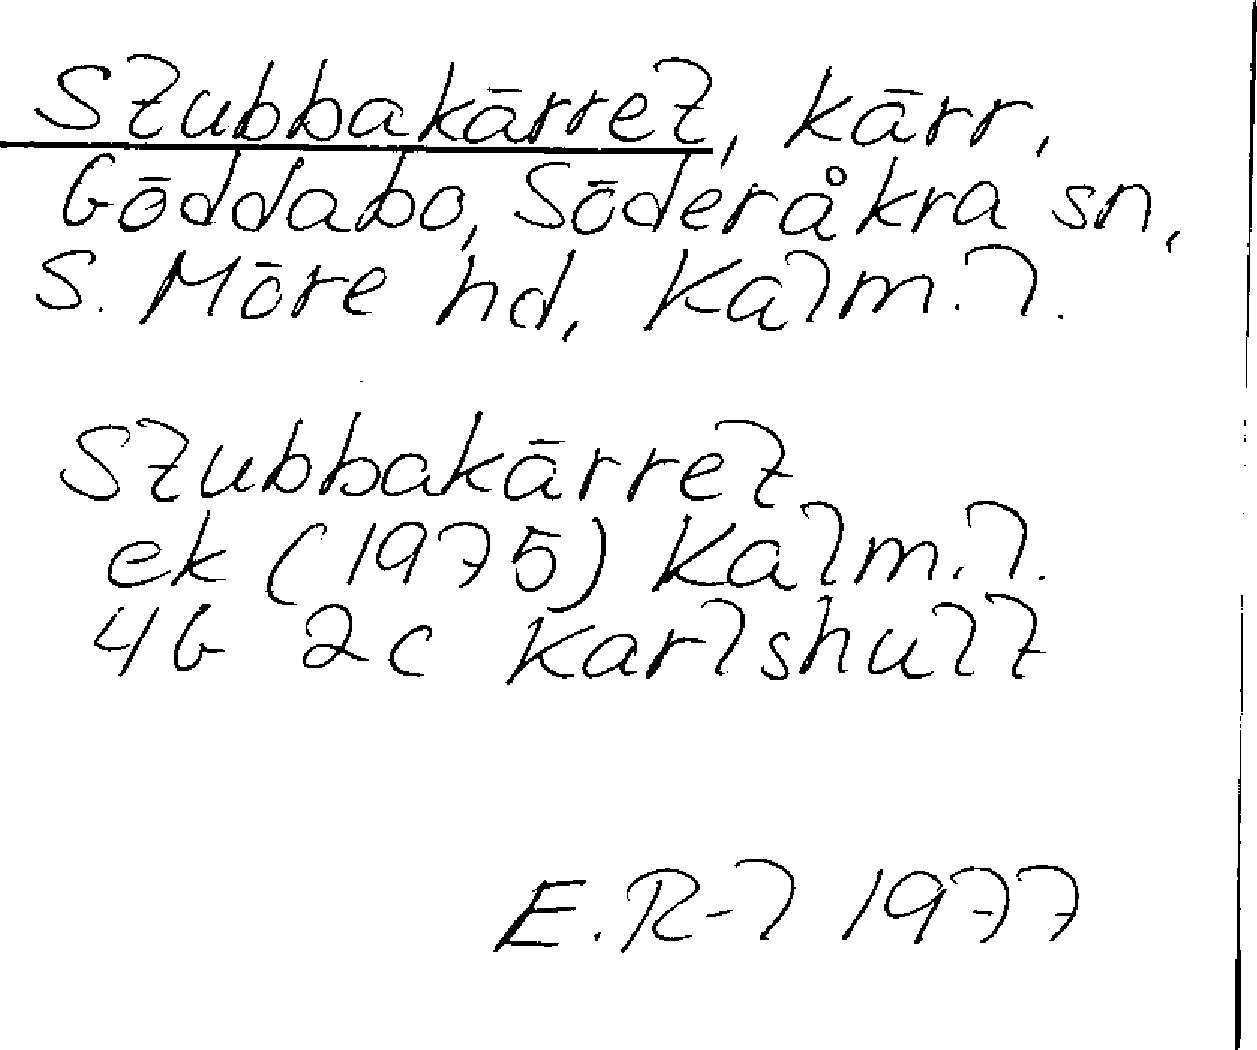 Stubbakärret, kärr,
Göddabo, Söderåkra sn,
S. Möre hd, Kalm. l.
Stubbakärret
ek (1975) Kalm. l.
4G 2c Karlshult
E. R-l 1977